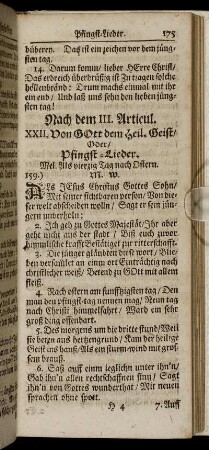 Pfingst-Lieder. 175
büberey. Das ist ein zeichen vor dem jüng-
sten tag.
14. Darum komm/ lieber HErre Christ/
Das erdreich überdrüßig ist Zu tragen solche
höllenbränd: Drum machs einmal mit ihr
ein end/ Und laß uns sehn den lieben jüng-
sten tag!
Nach dem III. Articul.
XXII. Von GOtt dem Heil. Geist/
Oder/
Pfingst-Lieder.
Mel. Als vierzig Tag nach Ostern.
159.) M. W.
ALs JEsus Christus Gottes Sohn/
Mit seiner sichtbaren person/ Von die-
ser welt abscheiden wolln/ Sagt er sein jün-
gern unverholn:
2. Ich geh zu Gottes Majestät/ Ihr aber
geht nicht aus der stadt/ Bis euch zuvor
himmlische krafft Bestätiget zur ritterschafft.
3. Die jünger gläubten diese wort/ Blie-
ben versamlet an eim ort Einträchtig nach
christlicher weiß/ Betend zu GOtt mit allem
fleiß.
4. Nach ostern am funffzigsten tag/ Den
man den pfingst-tag nennen mag/ Neun tag
nach Christi himmelfahrt/ Ward ein sehr
groß ding offenbart.
5. Des morgens um die dritte stund/ Weil
sie beten aus hertzengrund/ Kam der heilige
Geist ins hauß/ Als ein sturm-wind mit gros-
sem brauß.
6. Saß auff einm ieglichn unter ihn'n/
Gab ihn'n allen rechtschaffnen sinn/ Sagt
ihn'n von Gottes wunderthat/ Mit neuen
sprachen ohne spott.
H 4 7. Auff